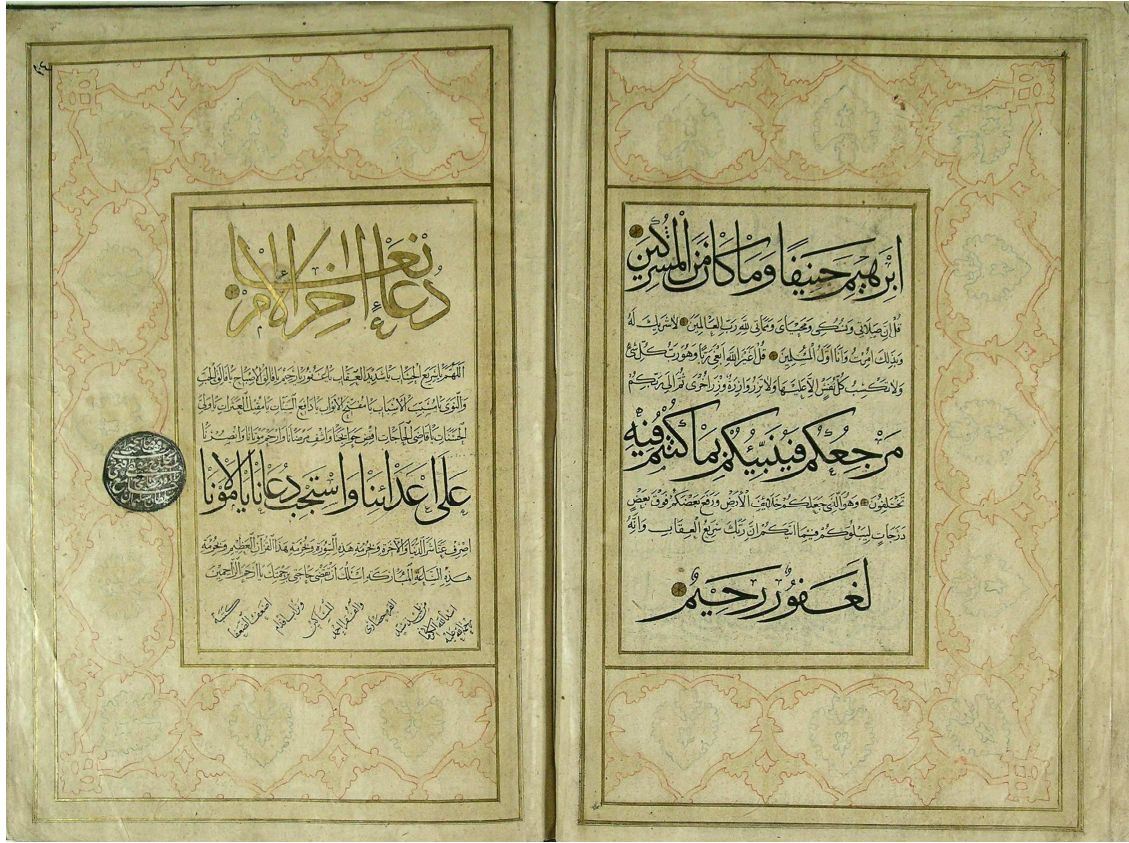 ابرهيمَ حَنِيفًا وَمَا كَانَ مِنَ الْمُشْرِكِينَ
قُل اِنَّ صَلَاتي وَنُسُكي وَمَحْيَايَ وَمَمَاتي للهِ رَبِّ العَالَمِينَ لا شَريكَ لَهُ
وَبِذلِكَ اُمِرْتُ وَاَنَا اَوَّلُ الْمُسْلِمِينَ قُلْ اَغَيْرَ اللهِ اَبْغي رَبًّا وَهُوَ رَبُّ كُلِّ شَئ
وَلَا تَكْسِبُ كُلُّ نَفْسٍ اِلَّا عَلَيْهَا وَلَا تَزِرُ وَازِرَةٌ وِزْرَ اُخْرَى ثُمَّ اِلَى رَبِّكُمْ
مَرْجِعُكُمْ فَيُنَبِّئُكُمْ بِمَا كُنْتُمْ فِيهِ
تَخْتَلِفُونَ وَهُوَ الَّذي جَعَلَكُمْ خَلَائِفَ الْاَرْضِ وَرَفَعَ بَعْضَكُمْ فَوْقَ بَعْضٍ
دَرَجَاتٍ لِيَبْلُوَكُمْ فِيمَا اتيكُمْ اِنَّ رَبَّكَ سَرِيعُ الْعِقَابِ وَاِنَّهُ
لَغَفُورٌ رَحِيمٌ
دُعَاء اخر الانعام
اللهم يا سريع الحساب يا شديد العقاب يا غفور يا رحيم يا فالق الاصباح يا فالق الحب
والنوى يا مسبب الاسباب يا مفتح الابواب يا دافع السيئات يا مقيل العثرات يا ولي
الحسنات يا قاضي الحاجات اقض حوائجنا واشف مرضانا وارحم موتانا وانصرنا
عَلَى اَعْدَائِنَا وَاسْتَجِبْ دُعَانَا يَا مَوْلَانَا
اصرف عنا شر الدنيا والاخرة وبحرمة هذه السورة وبحرمة هذا القران العظيم وبحرمة
هذه الساعة المباركة اسئلك ان تقضي حاجتي برحمتك يا ارحم الراحمين
كتبه اضعف الضعفا